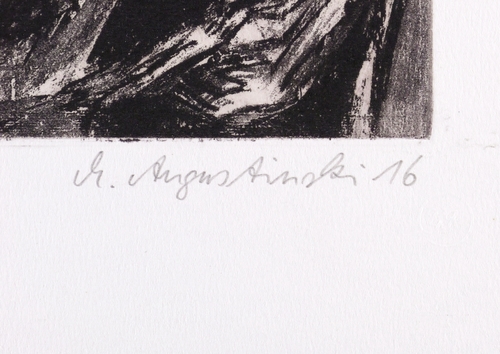 M. Augustinski 16